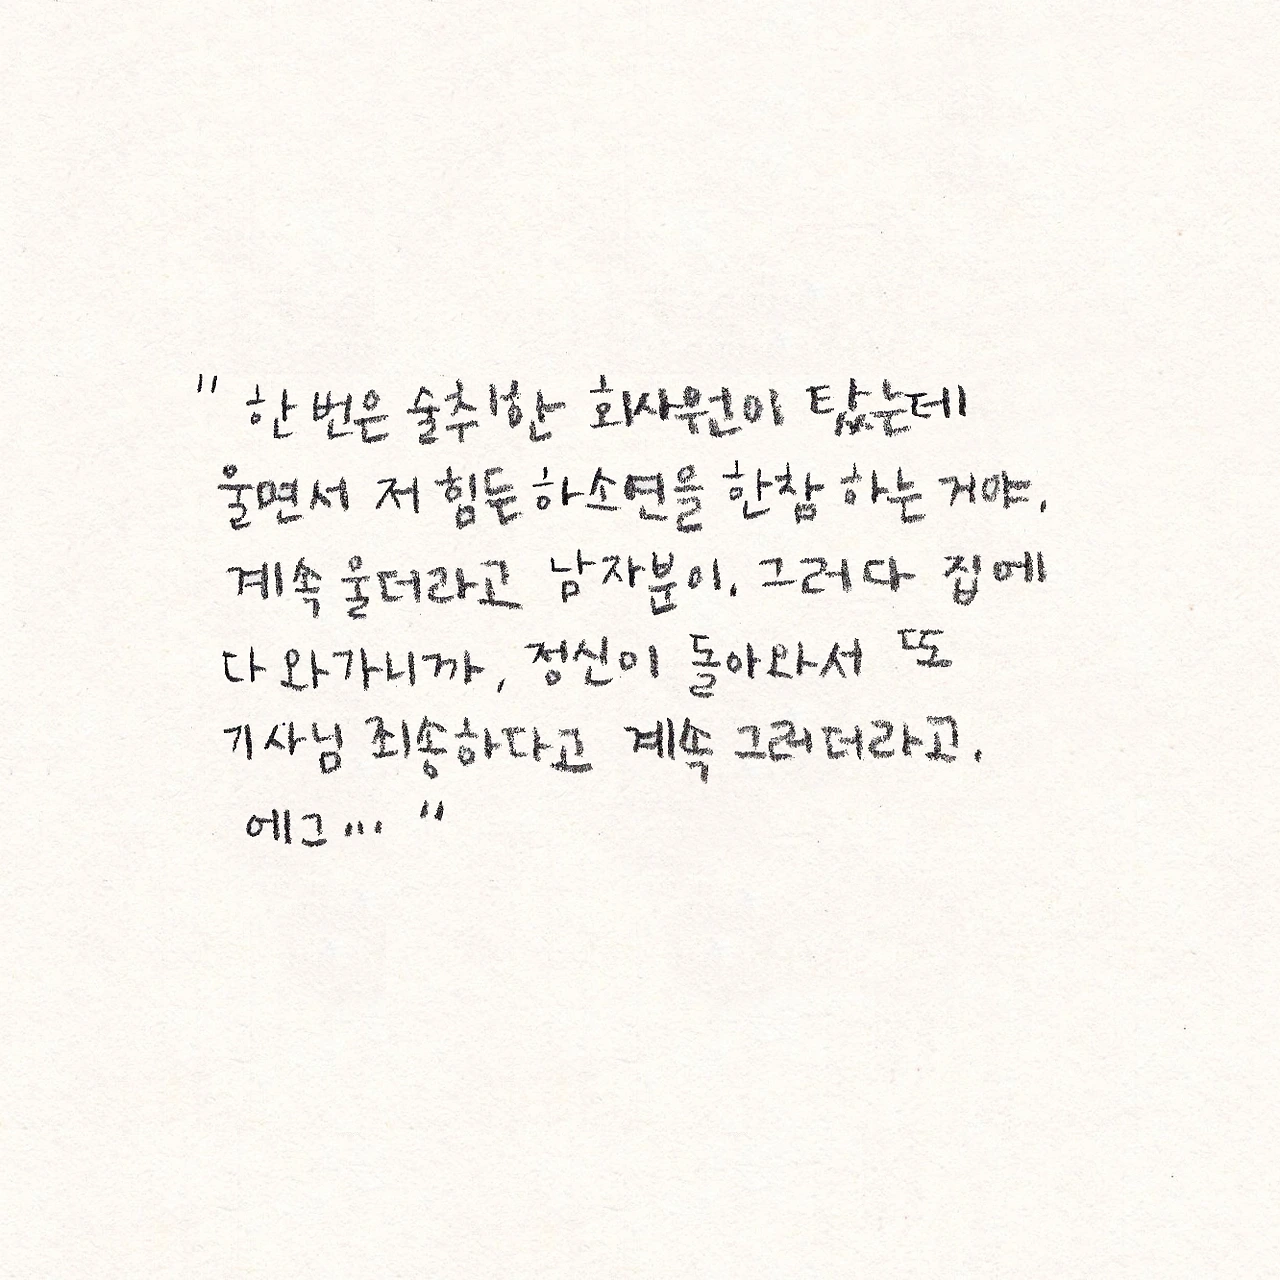 "한번은 술취한 회사원이 탔는데
울면서 저 힘든 하소연을 한참 하는 거야.
계속 울더라고 남자분이. 그러다 집에
다 와가니까, 정신이 돌아와서 또
기사님 죄송하다고 계속 그러더라고.
에그..."